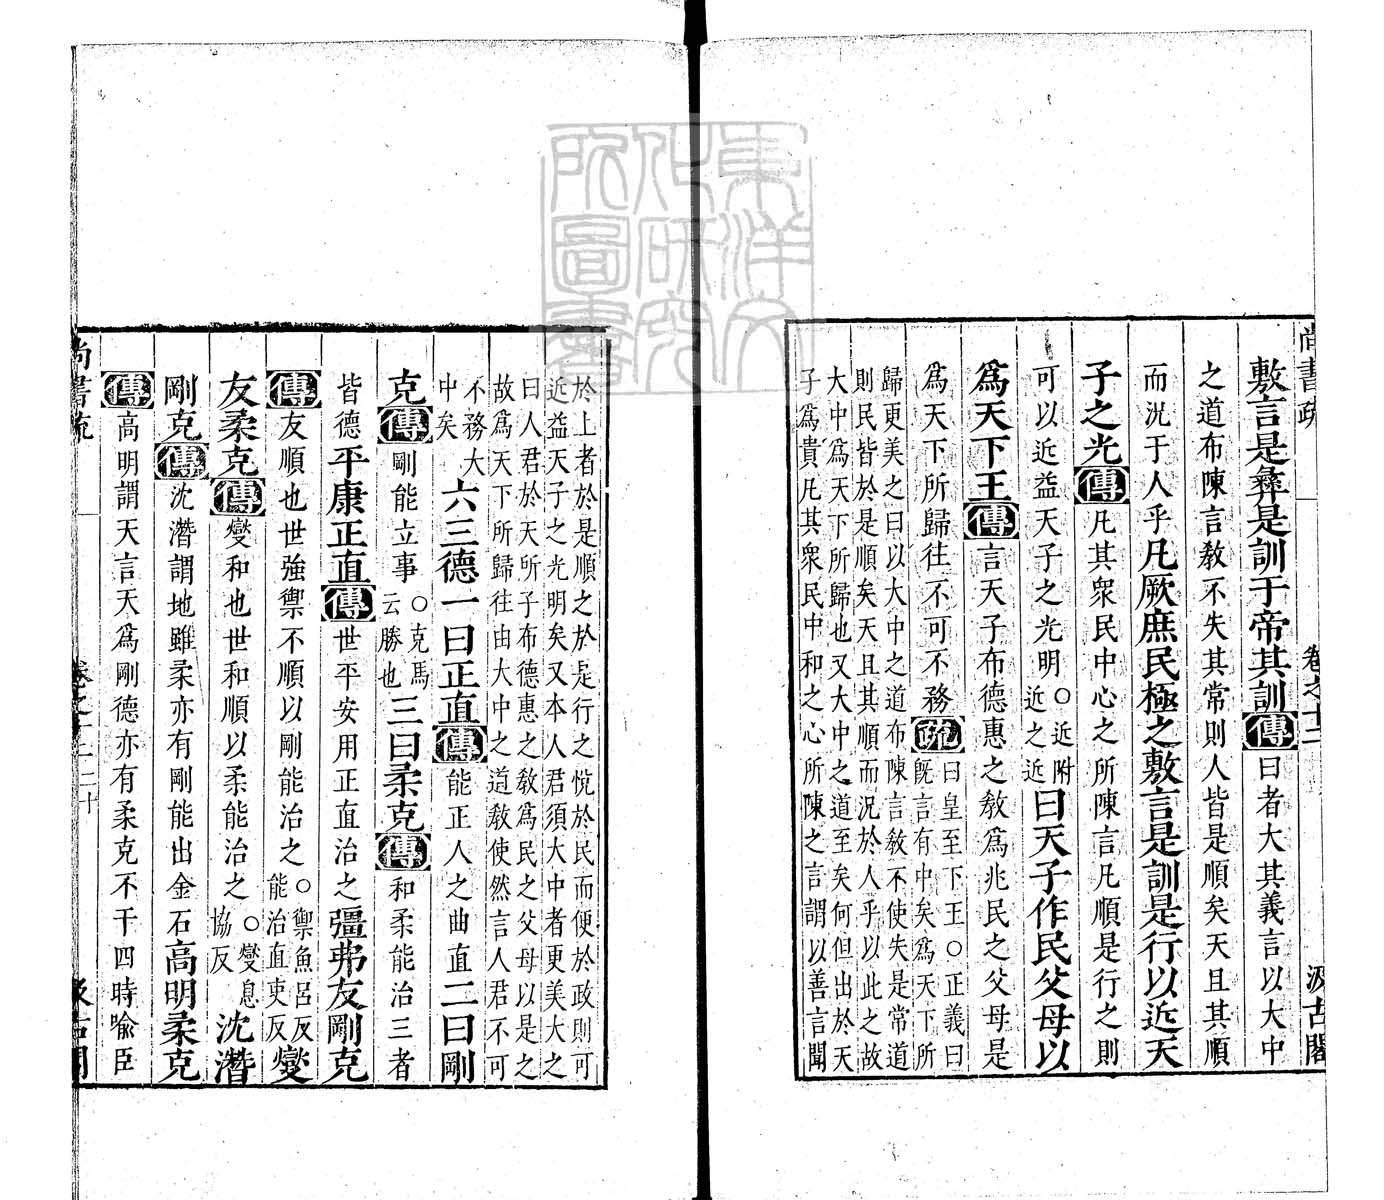 尚書疏 卷之十二 汲古閣
敷言是彝是訓于帝其訓傳曰者大其義言以大中
之道布陳言教不失其常則人皆是順矣天且其順
而況于人乎凡厥庶民極之敷言是訓是行以近天
子之光傳凡其衆民中心之所陳言凡順是行之則
可以近益天子之光明○近附近之近曰天子作民父母以
爲天下王傳言天子布德惠之教爲兆民之父母是
爲天下所歸往不可不務疏曰皇至下王○正義曰
既言有中矣爲天下所
歸更美之曰以大中之道布陳言教不使失是常道
則民皆於是順矣天且其順而況於人乎以此之故
大中爲天下所歸也又大中之道至矣何但出於天
子爲貴凡其衆民中和之心所陳之言謂以善言聞
於上者於是順之於是行之悅於民而便於政則可
近益天子之光明矣又本人君須大中者更美大之
曰人君於天所子布德惠之教爲民之父母以是之
故爲天下所歸往由大中之道教使然言人君不可
不務大
中矣
六三德一曰正直傳能正人之曲直二曰剛
克傳剛能立事○克馬云勝也三曰柔克傳和柔能治三者
皆德平康正直傳世平安用正直治之彊弗友剛克
傳友順也世強禦不順以剛能治之○禦魚呂反能治直吏反燮
友柔克傳燮和也世和順以柔能治之○燮息協反沈潛
剛克傳沈潛謂地雖柔亦有剛能出金石高明柔克
傳高明謂天言天爲剛德亦有柔克不干四時喻臣
尚書疏 卷之十二 二十 汲古閣
東洋文化研究所圖書